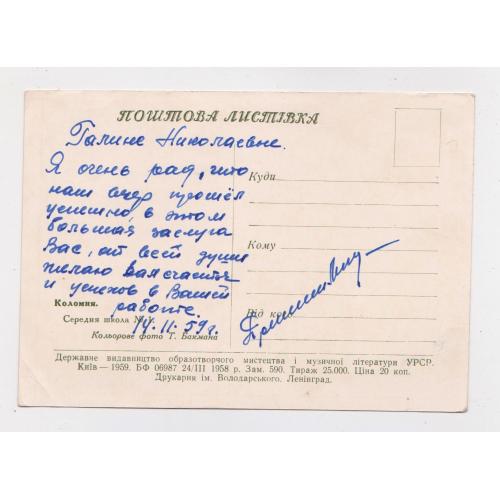 ПОШТОВА ЛИСТІВКА
Галине Николаевне.
Я очень рад, что
наш вечер прошёл
успешно, в этом
большая заслуга
Вас, от всей души
желаю вам счастья
и успехов в Вашей
работе.
14.11.59г.
Куди
Кому
Від кого
Коломия.
Середня школа № 1.
Кольорове фото Т. Бакмана
Державне видавництво образотворчого мистецтва і музичної літератури УРСР.
Київ — 1959. БФ 06987 24/III 1958 р. Зам. 590. Тираж 25.000. Ціна 20 коп.
Друкарня ім. Володарського. Ленінград.